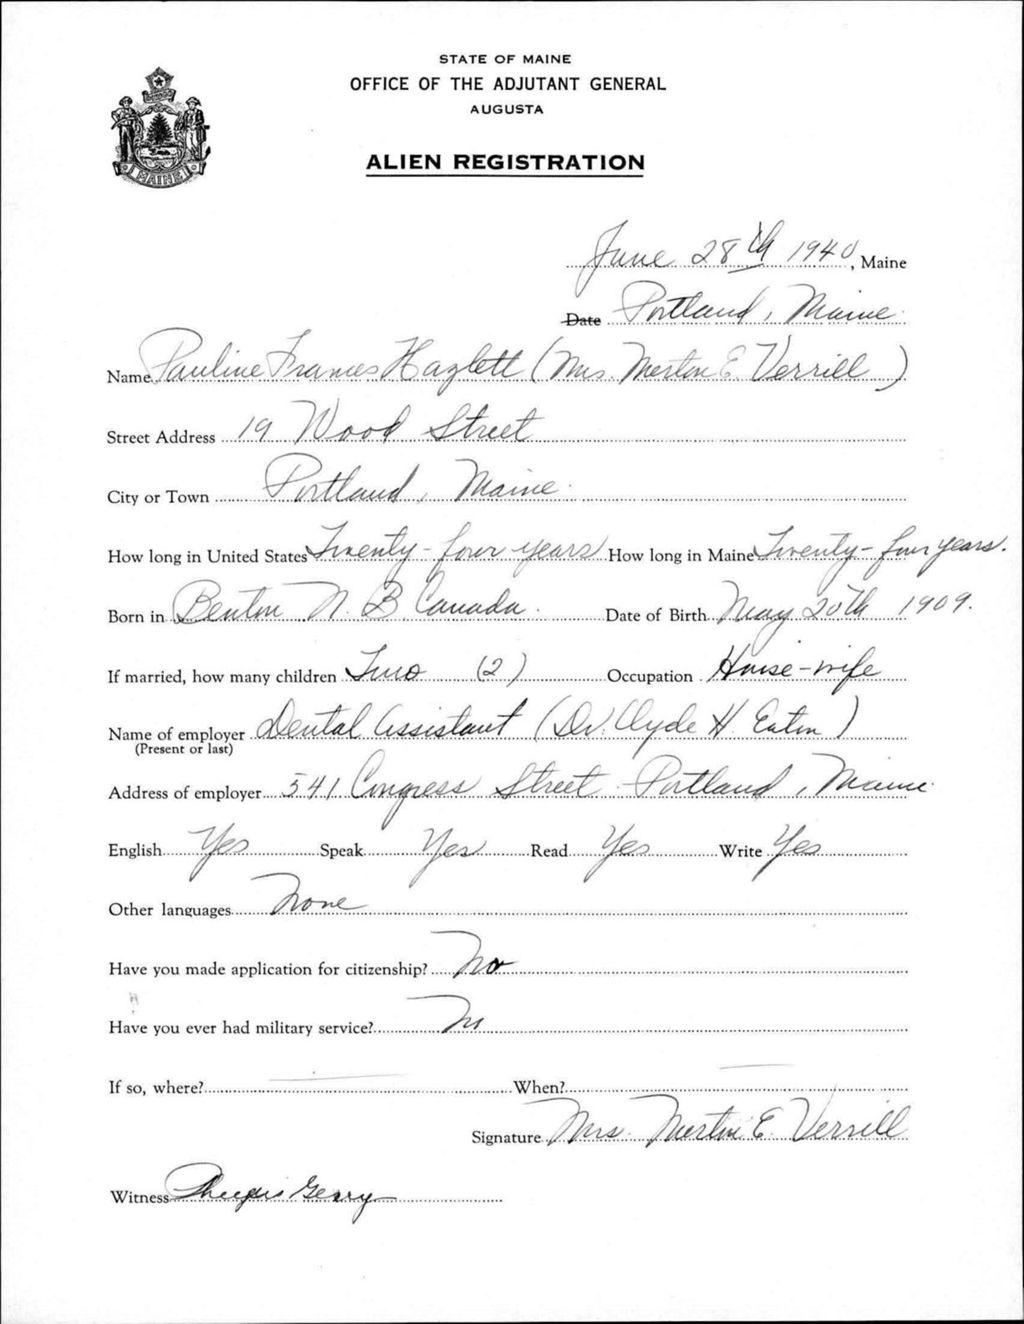 STATE OF MAINE
OFFICE OF THE ADJUTANT GENERAL
AUGUSTA
ALIEN REGISTRATION
MAINE
June 28th 1940, Maine
Date Portland, Maine
Name Pauline Frances Hazlett (Mrs. Merton E. Verrill)
Street Address 19 Wood Street
City or Town Portland, Maine.
How long in United States Twenty-four years How long in Maine Twenty-four years.
Born in Benton N. B. Canada. Date of Birth May 20th 1909.
If married, how many children Two (2) Occupation House-wife
Name of employer Dental Assistant (Dr. Clyde H. Eaton)
(Present or last)
Address of employer 541 Congress Street Portland, Maine.
English Yes Speak Yes Read Yes Write Yes
Other languages None
Have you made application for citizenship? No
Have you ever had military service? No
If so, where? — When? —
Signature Mrs. Merton E. Verrill
Witness Geary